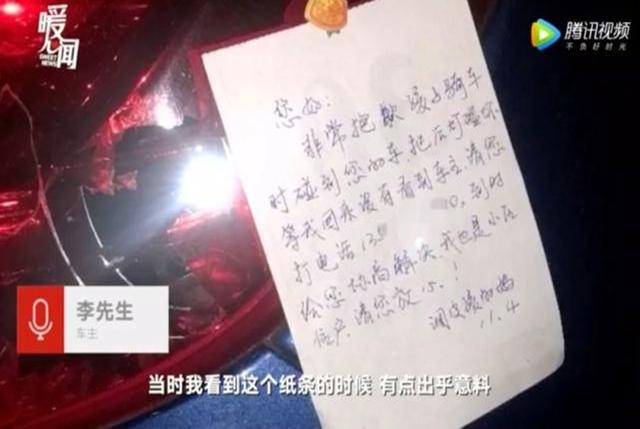 暖心闻
SWEET NEWS
腾讯视频
不负好时光
您好:
非常抱歉 孩子骑车
时碰到您的车,把后灯碰坏.
等我回来没有看到车主.请您
打电话13 0,到时
给您协商解决.我也是小区
住户.请您放心!
调皮孩的妈
11.4
李先生
车主
当时我看到这个纸条的时候 有点出乎意料